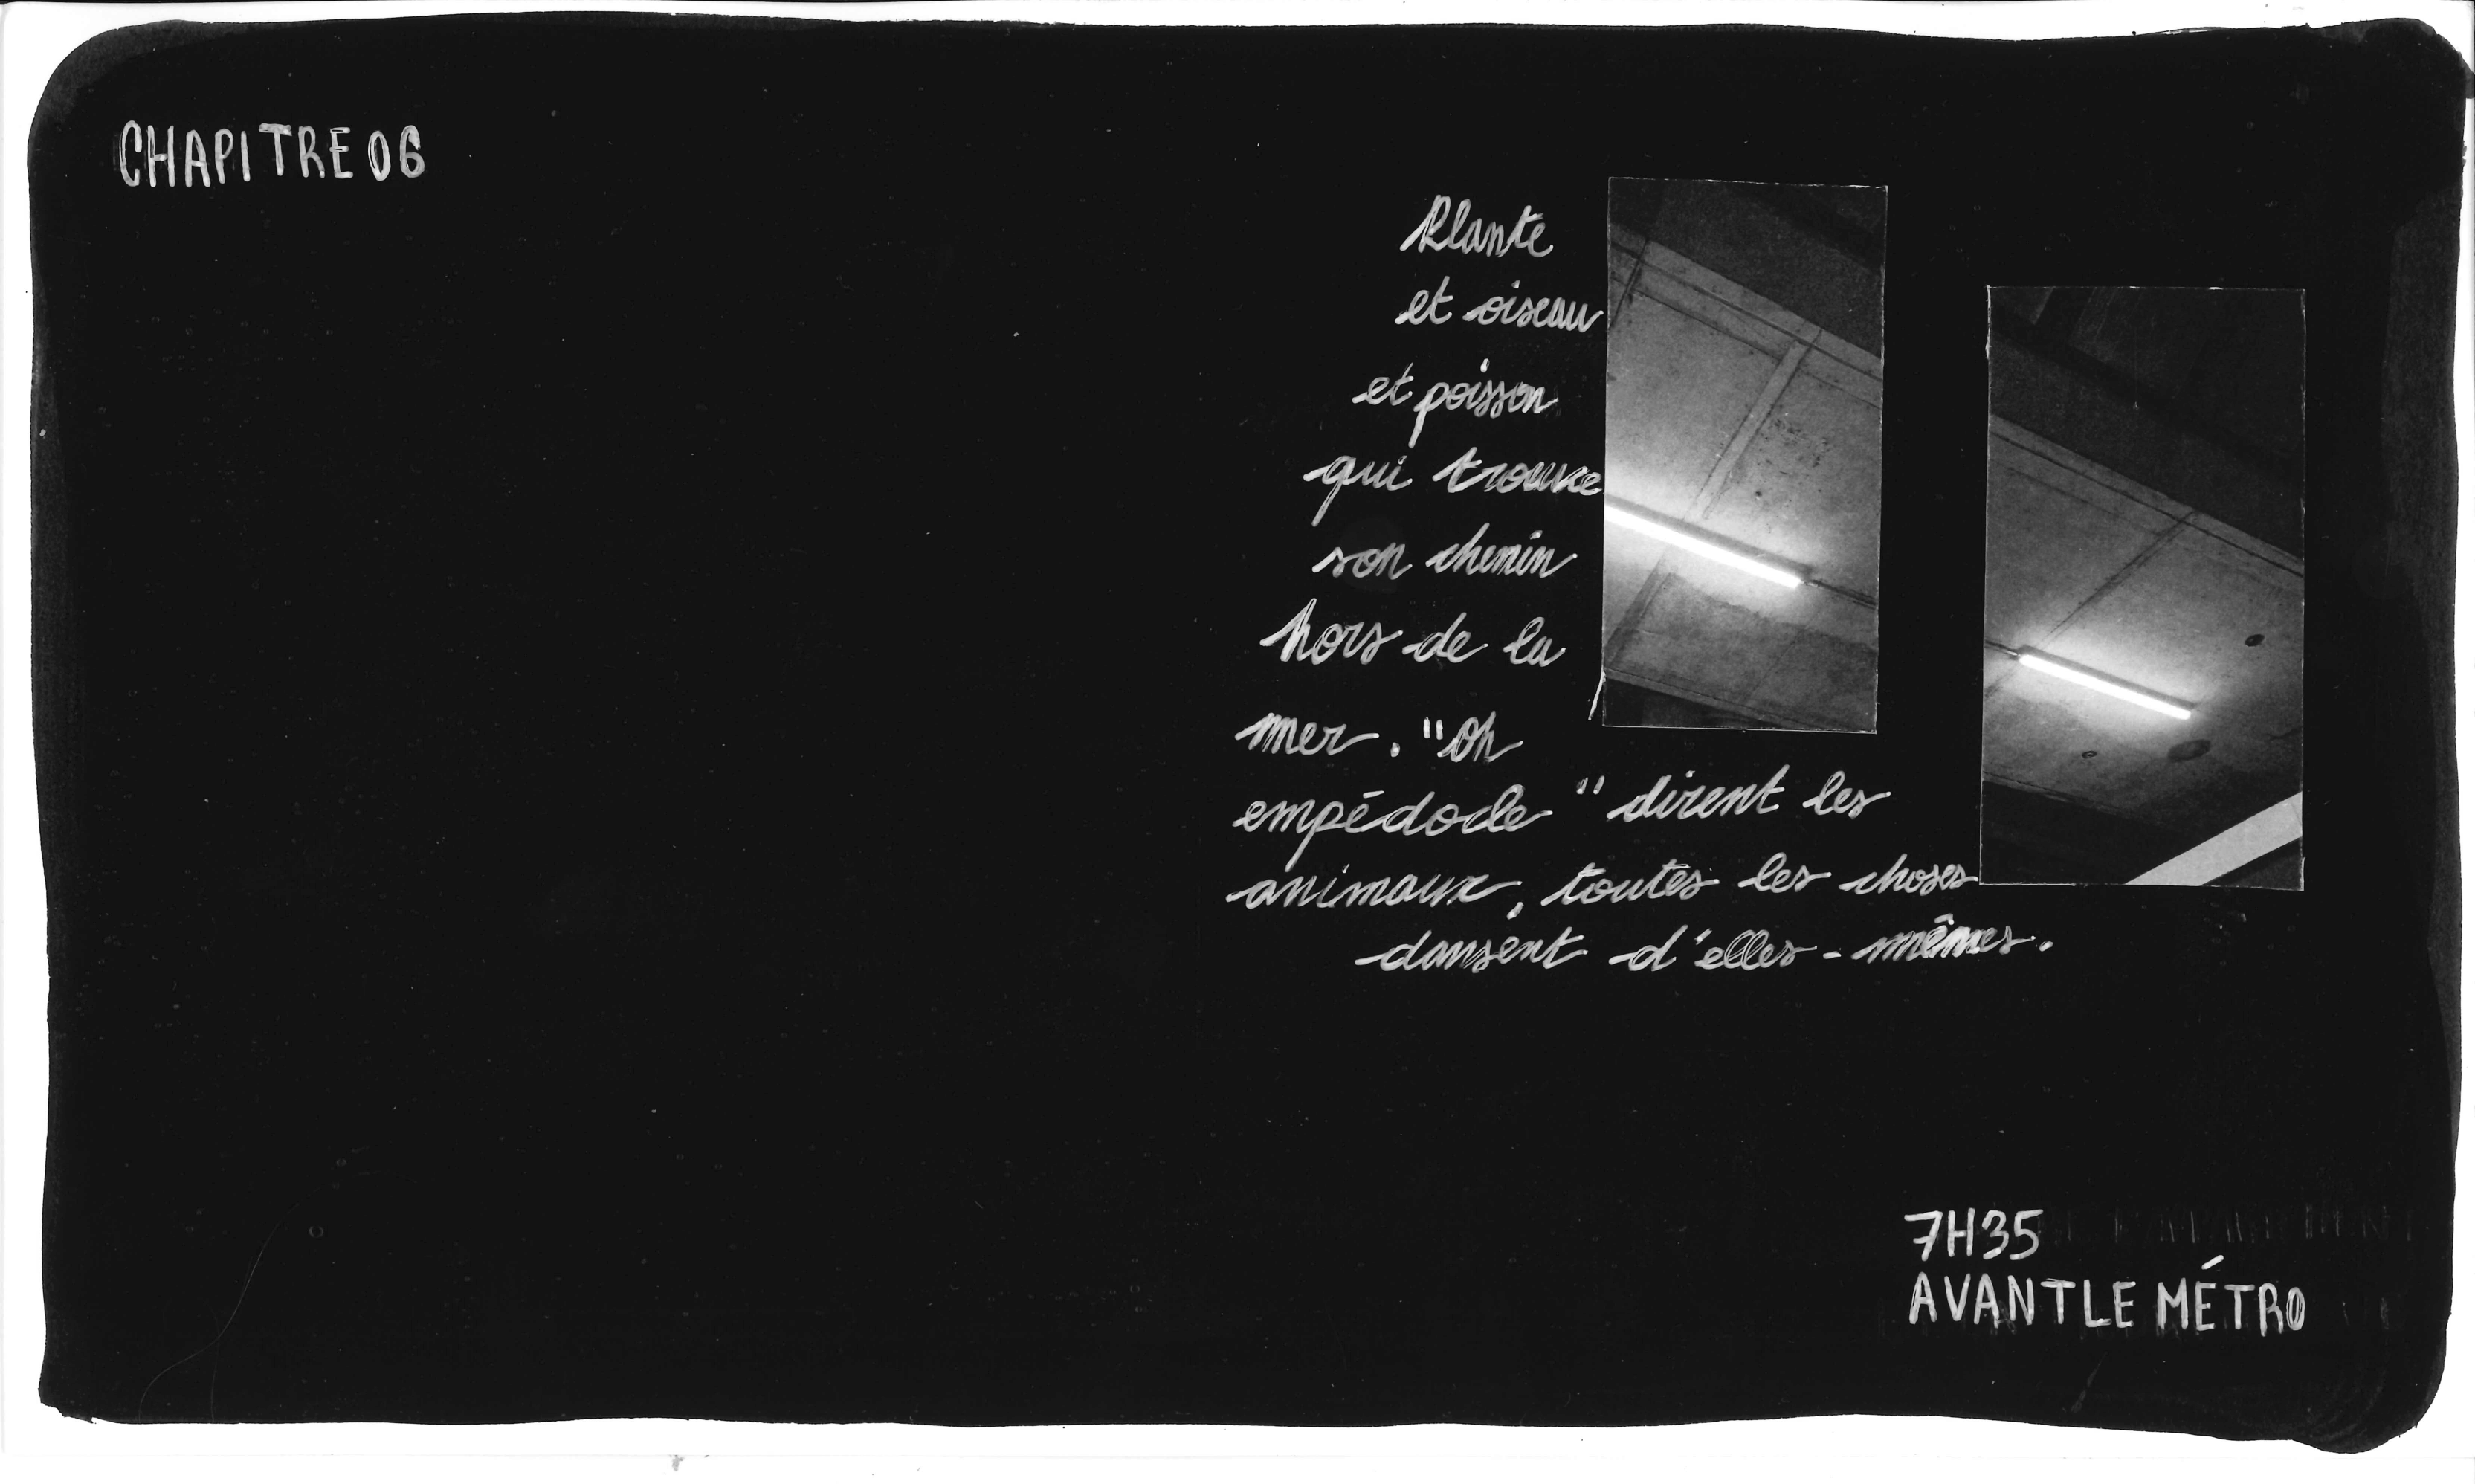 CHAPITRE 06
Plante
et oiseau
et poisson
qui trouve
son chemin
hors de la
mer. "Oh
empédocle" dirent les
animaux, toutes les choses
dansent d'elles-mêmes.
7H35
AVANT LE MÉTRO